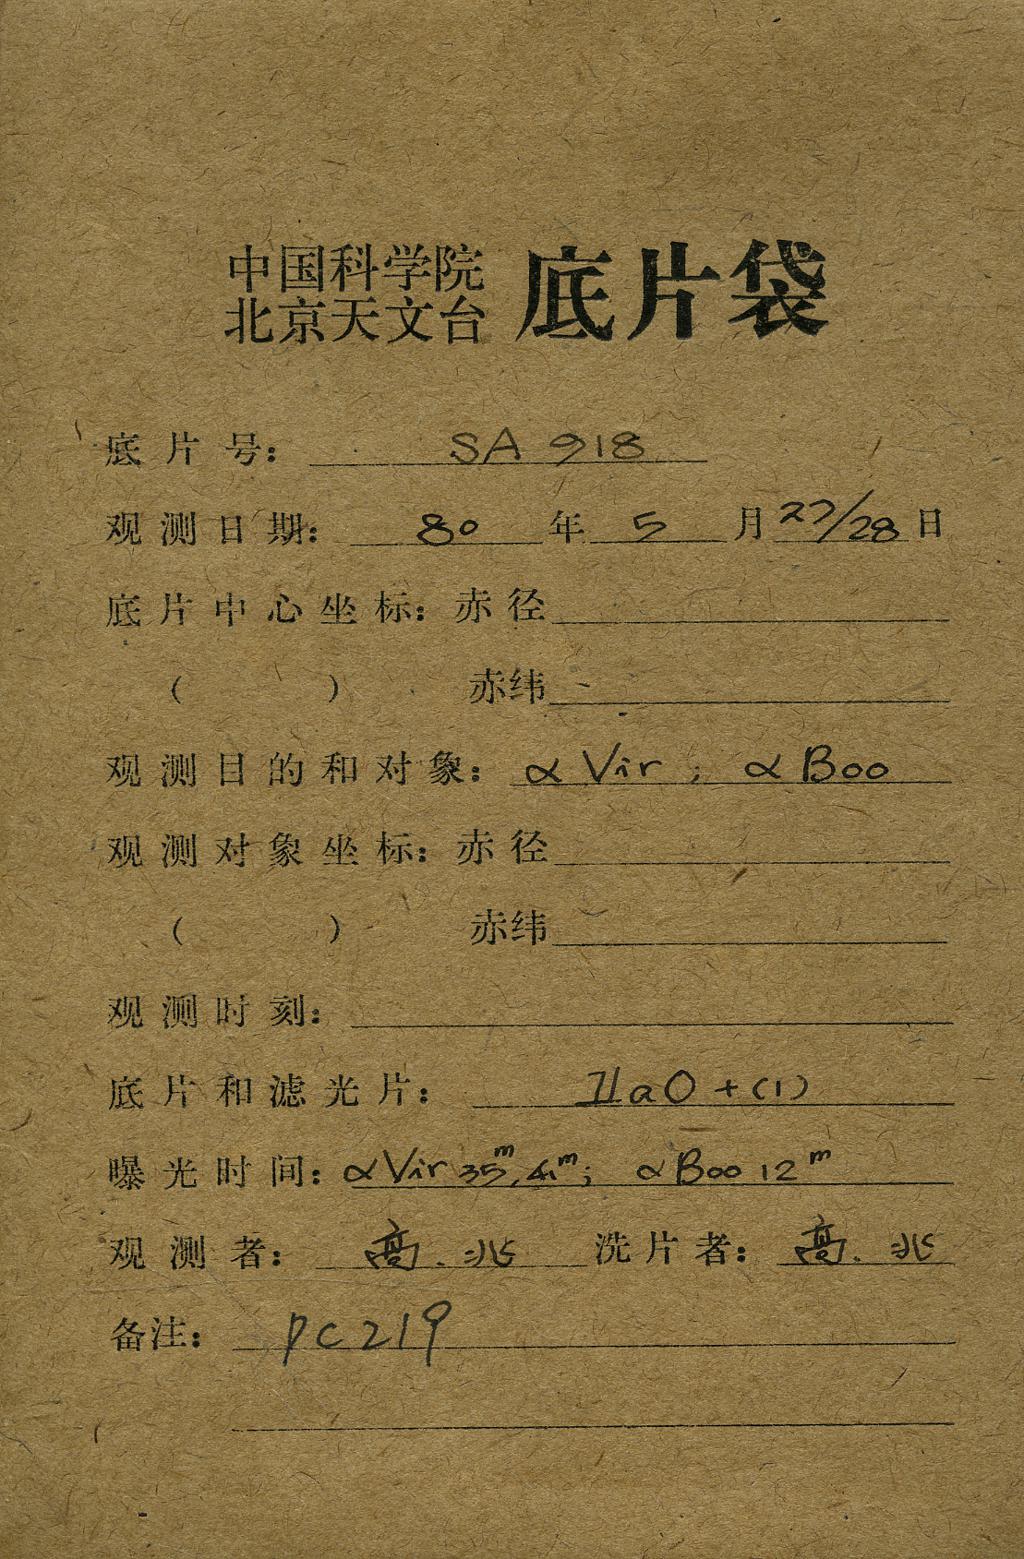 中国科学院
北京天文台 底片袋
底片号: SA 918
观测日期: 80 年 5 月 27/28 日
底片中心坐标: 赤径
( ) 赤纬
观测目的和对象: α Vir ; α Boo
观测对象坐标: 赤径
( ) 赤纬
观测时刻:
底片和滤光片: IIaO + (1)
曝光时间: αVir 35m, 41m; αBoo 12m
观测者: 高. 兆 洗片者: 高. 兆
备注: DC219